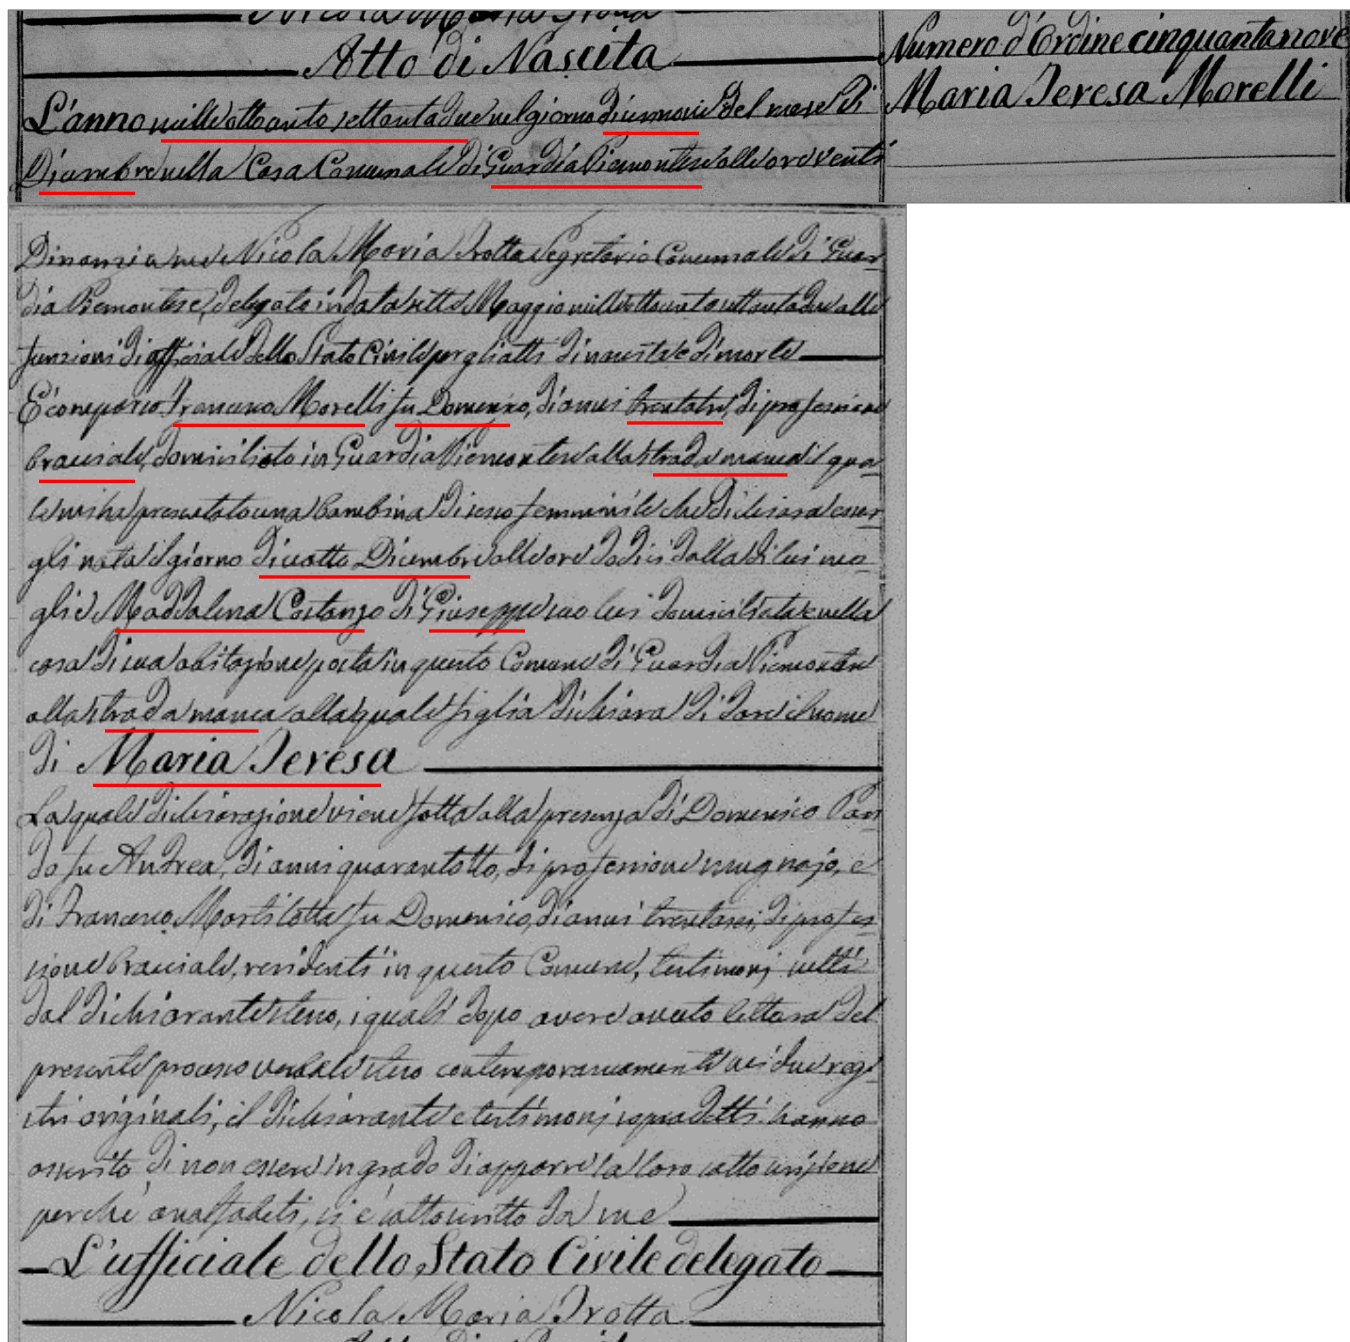 Nicola Maria Trotta
Atto di Nascita
Numero d'Ordine cinquantanove
Maria Teresa Morelli
L'anno mille ottocento settantadue nel giorno diciannove del mese di
Dicembre nella Casa Comunale di Guardia Piemontese alle ore venti
Dinanzi a me Nicola Maria Trotta Segretario Comunale di Guar-
dia Piemontese, delegato in data sette Maggio mille ottocento settantadue alle
funzioni di officiale dello Stato Civile per gli atti di nascita e di morte
È comparso Francesco Morelli fu Domenico, di anni trentatre, di professione
bracciale, domiciliato in Guardia Piemontese alla strada manca il qua-
le mi ha presentato una bambina di sesso femminile che dichiara esser-
gli nata il giorno dieciotto Dicembre alle ore dodici dalla di lui mo-
glie Maddalena Costanzo di Giuseppe seco lui domiciliata e nella
casa di sua abitazione posta in questo Comune di Guardia Piemontese
alla strada manca alla quale figlia dichiara di dare il nome
di Maria Teresa
La quale dichiarazione viene fatta alla presenza di Domenico
fu Andrea, di anni quarantotto, di professione mugnajo, e
di Francesco Martilotta fu Domenico, di anni trentasei, di profes-
sione bracciale, residenti in questo Comune, testimonj scelti
dal dichiarante stesso, i quali dopo avere avuto lettura del
presente processo verbale steso contemporaneamente nei due regi-
stri originali, il dichiarante e testimonj sopradetti hanno
asserito di non essere in grado di apporre la loro sottoscrizione
perchè analfabeti, si è sottoscritto da me
L'ufficiale dello Stato Civile delegato
Nicola Maria Trotta